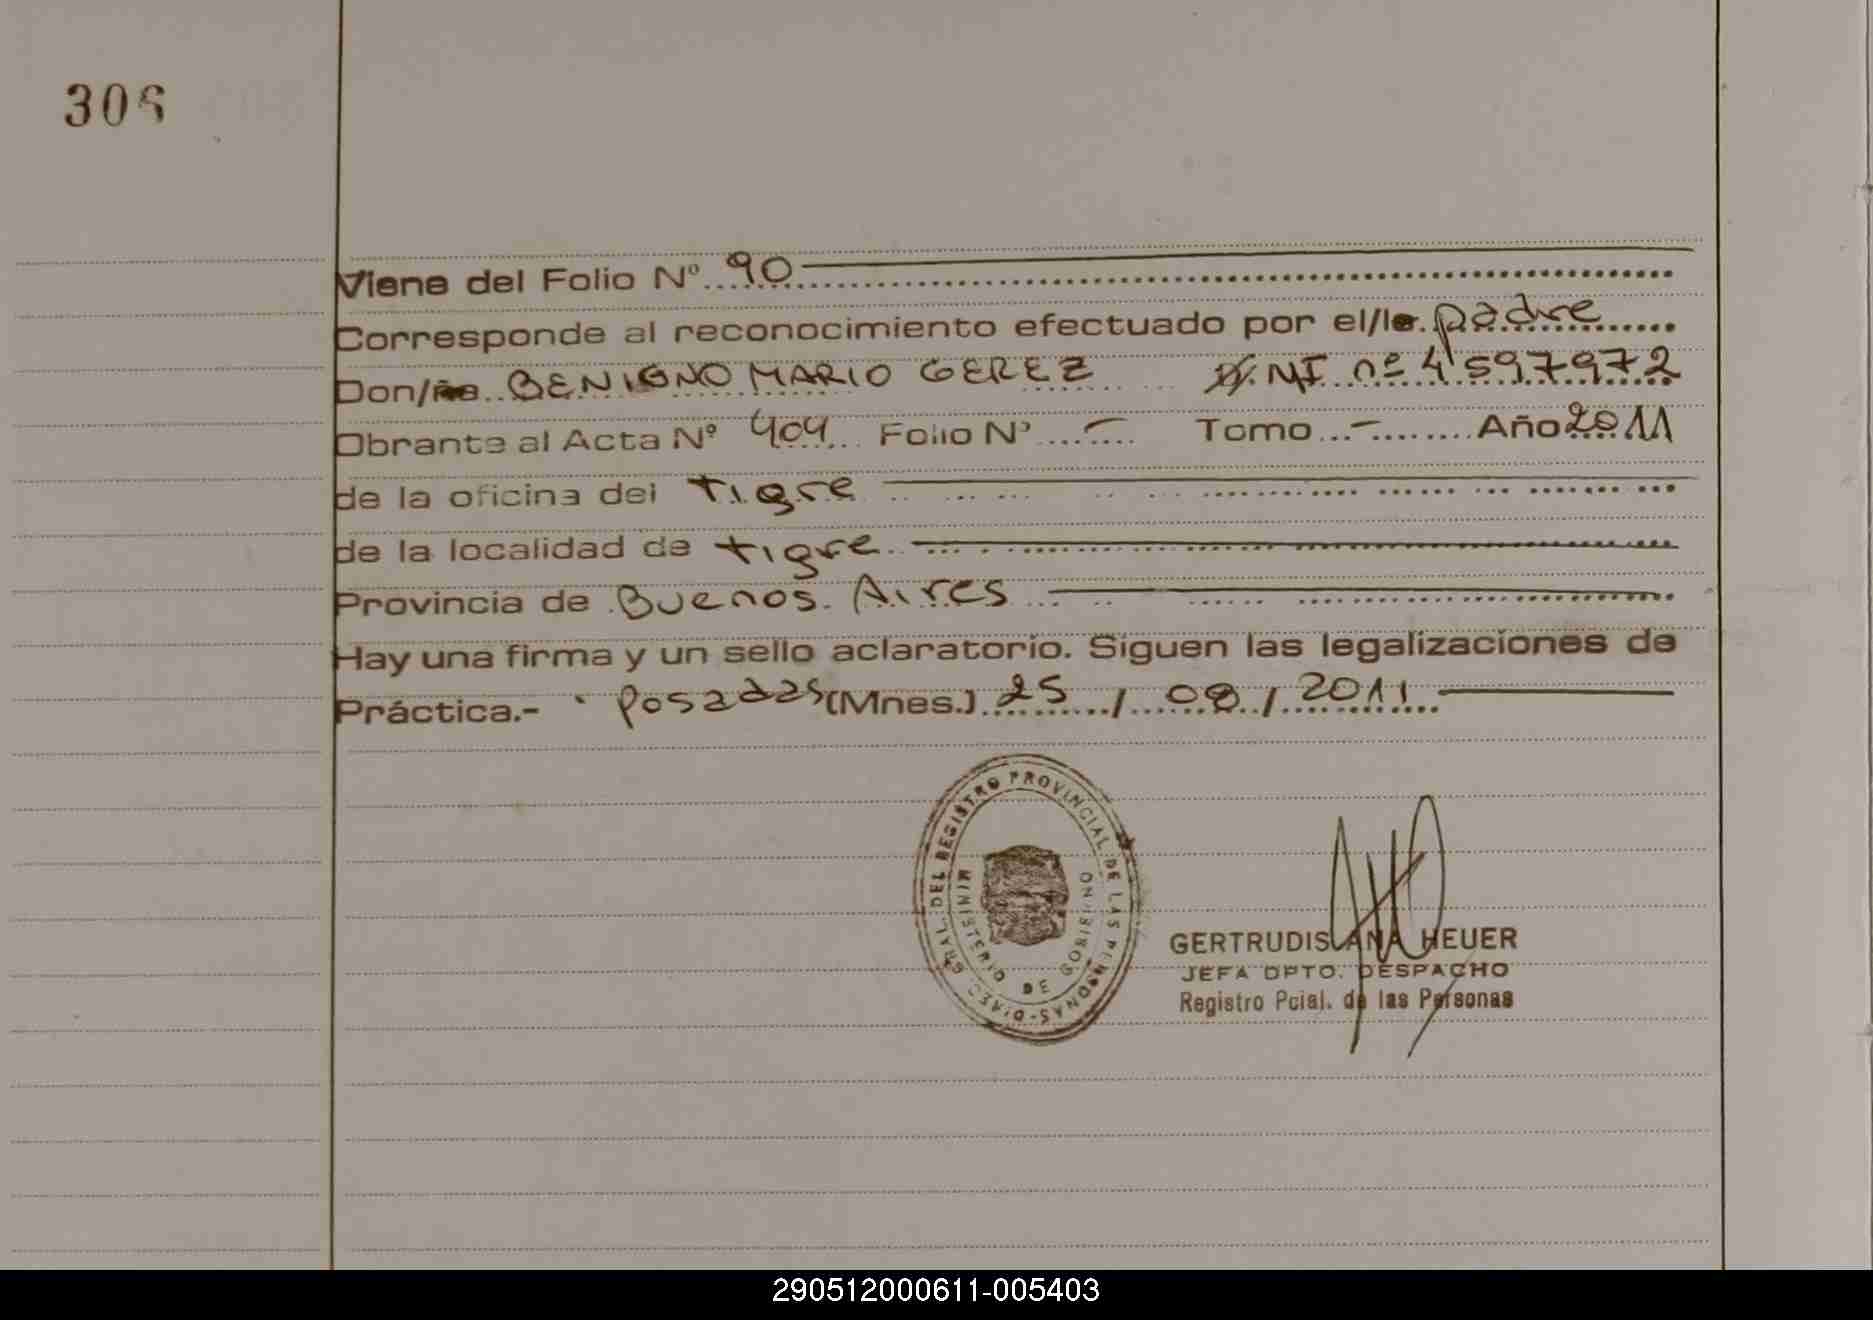 306
Viene del Folio Nº 90
Corresponde al reconocimiento efectuado por el/la padre
Don/ña BENIGNO MARIO GEREZ D.NI nº 4597972
Obrante al Acta Nº 404 Folio Nº - Tomo - Año 2011
de la oficina del tigre
de la localidad de tigre
Provincia de Buenos Aires
Hay una firma y un sello aclaratorio. Siguen las legalizaciones de
Práctica.- Posadas (Mnes.) 25 / 08 / 2011
DIREC. GRAL. DEL REGISTRO PROVINCIAL DE LAS PERSONAS
MINISTERIO DE GOBIERNO
GERTRUDIS ANA HEUER
JEFA DPTO. DESPACHO
Registro Pcial. de las Personas
290512000611-005403